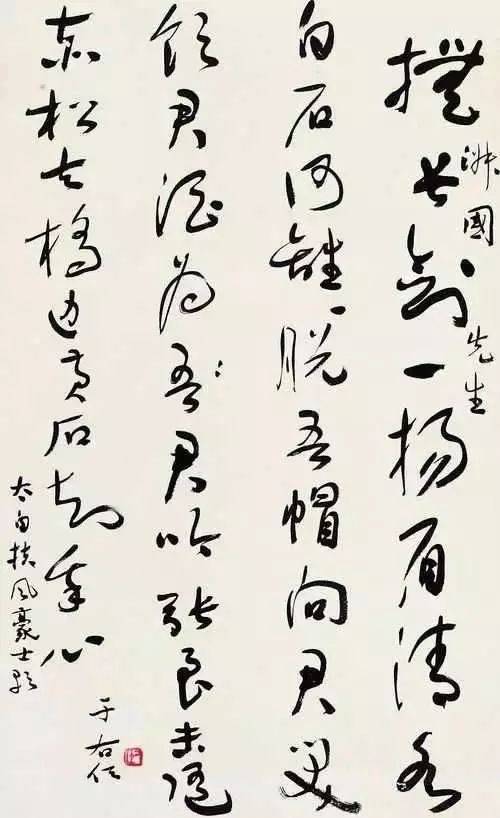 撫長劍一揚眉清水
國先生
白石何離〻脱吾帽向君笑
飲君酒為吾君吟張良未逐
赤松去橋邊黄石知我心
太白扶風豪士歌
于右任